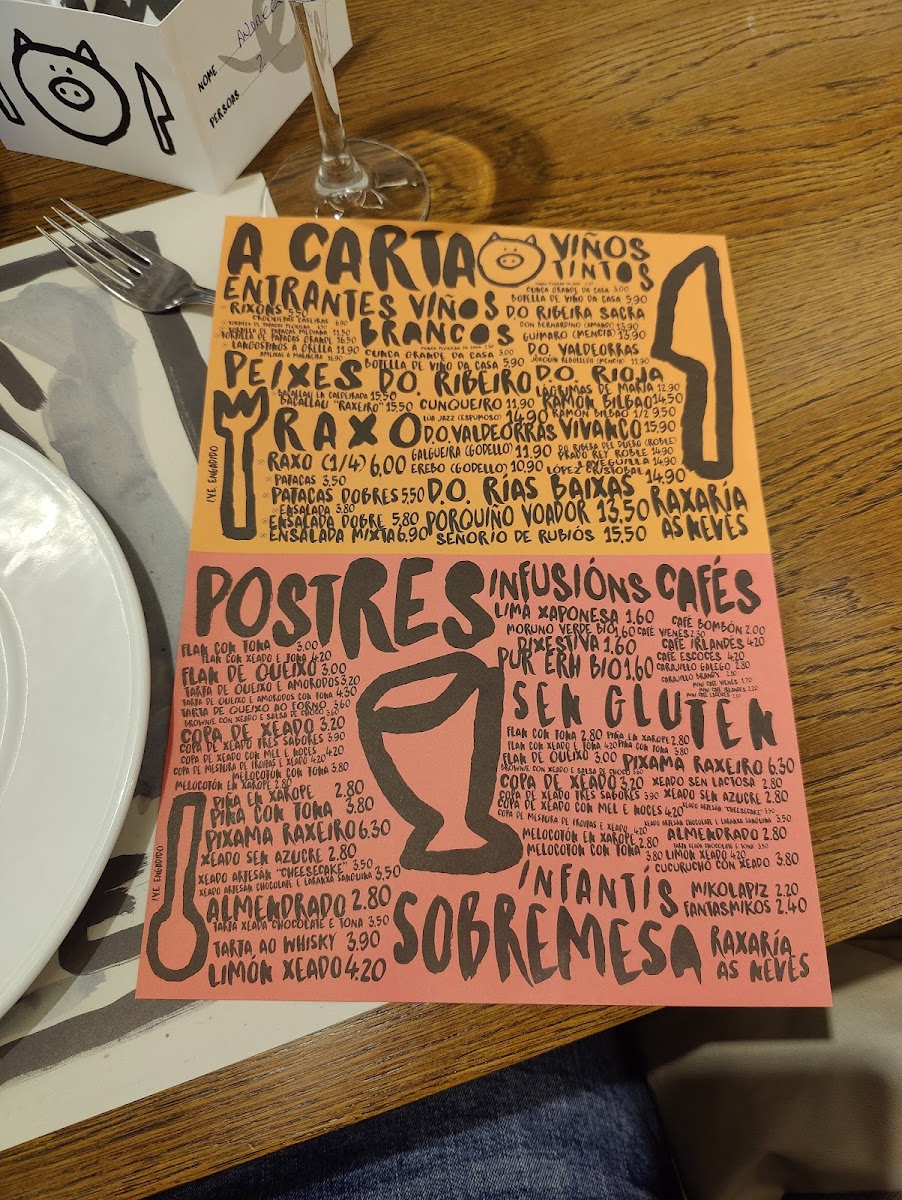 NOME ANDREA
PERSOAS 2
A CARTA
ENTRANTES
RIXONS 5.50
CROQUETAS CASEIRAS 6.90
TORTILLA DE PATACAS PEQUENA
TORTILLA DE PATACAS MEDIANA 11.50
TORTILLA DE PATACAS GRANDE 16.50
LANGOSTINOS A GRELLA 11.90
AMEIXAS A MARIÑEIRA 16.90
PEIXES
BACALLAU EN CALDEIRADA 15,50
BACALLAU "RAXEIRO" 15,50
RAXO
RAXO (1/4) 6,00
PATACAS 3,50
PATACAS DOBRES 5,50
ENSALADA 3.80
ENSALADA DOBRE 5,80
ENSALADA MIXTA 6,90
I.V.E ENGADIDO
VIÑOS BRANCOS
CUNCA GRANDE DA CASA 3.00
BOTELLA DE VIÑO DA CASA 5,90
D.O. RIBEIRO
CUNQUEIRO 11,90
LÚA JAZZ (ESPUMOSO) 14,90
D.O. VALDEORRAS
GALGUEIRA (GODELLO) 11,90
EREBO (GODELLO) 10,90
D.O. RÍAS BAIXAS
PORQUIÑO VOADOR 13,50
SEÑORIO DE RUBIÓS 15,50
VIÑOS TINTOS
CUNCA GRANDE DA CASA 3.00
BOTELLA DE VIÑO DA CASA 5,90
D.O RIBEIRA SACRA
DON BERNARDINO (AMANDI) 13,90
GUIMARO (MENCÍA) 13,90
D.O. VALDEORRAS
JOAQUÍN REBOLLEDO (MENCÍA) 11,90
D.O. RIOJA
LÁGRIMAS DE MARÍA 12,90
RAMÓN BILBAO 14,50
RAMÓN BILBAO 1/2 9,50
VIVANCO 15,90
D.O RIBERA DEL DUERO (ROBLE)
PRADO REY ROBLE 14,90
LAVEGUILLA 14,90
LÓPEZ CRISTOBAL 14,90
RAXARÍA
AS NEVES
POSTRES
FLAN CON TONA 3,00
FLAN CON XEADO E TONA 4.20
FLAN DE QUEIXO 3,00
TARTA DE QUEIXO E AMORODOS 3,20
TARTA DE QUEIXO E AMORODOS CON TONA 4.30
TARTA DE QUEIXO AO FORNO 3.60
BROWNIE CON XEADO E SALSA DE CHOCO 3.60
COPA DE XEADO 3,20
COPA DE XEADO TRES SABORES 3.90
COPA DE XEADO CON MEL E NOCES 4.20
COPA DE MESTURA DE FROITAS E XEADO 4.20
MELOCOTÓN CON TONA 3.80
MELOCOTÓN EN XAROPE 2.80
PIÑA EN XAROPE 2.80
PIÑA CON TONA 3.80
PIXAMA RAXEIRO 6.30
XEADO SEN AZUCRE 2.80
XEADO ARTESÁN "CHEESECAKE" 3,50
XEADO ARTESÁN CHOCOLATE E LARANXA SANGUINA 3,50
ALMENDRADO 2.80
TARTA XEADA CHOCOLATE E TONA 3,50
TARTA AO WHISKY 3.90
LIMÓN XEADO 4.20
I.V.E ENGADIDO
INFUSIÓNS
LIMA XAPONESA 1.60
MORUNO VERDE BIO 1.60
DIXESTIVA 1.60
PUR ERH BIO 1.60
CAFÉS
CAFÉ BOMBÓN 2.00
CAFÉ VIENÉS 2.30
CAFÉ IRLANDÉS 4,20
CAFÉ ESCOCÉS 4.20
CARAJILLO GALEGO 2.80
CARAJILLO BRANDY
MINI CAFÉ VIENÉS
MINI CAFÉ IRLANDÉS
MINI CAFÉ ESCOCÉS
SEN GLUTEN
FLAN CON TONA 2.80
FLAN CON XEADO E TONA 4.20
FLAN DE QUEIXO 3.00
BROWNIE CON XEADO E SALSA DE CHOCO
COPA DE XEADO 3,20
COPA DE XEADO TRES SABORES 3.90
COPA DE XEADO CON MEL E NOCES 4.20
COPA DE MESTURA DE FROITAS E XEADO 4.20
MELOCOTÓN EN XAROPE 2.80
MELOCOTÓN CON TONA 3.80
PIÑA EN XAROPE 2.80
PIÑA CON TONA 3.80
PIXAMA RAXEIRO 6.30
XEADO SEN LACTOSA 2.80
XEADO SEN AZUCRE 2.80
XEADO ARTESÁN "CHEESECAKE"
XEADO ARTESÁN CHOCOLATE E LARANXA SANGUINA 3,50
ALMENDRADO 2.80
TARTA XEADA CHOCOLATE E TONA 3.50
LIMÓN XEADO 4.20
CUCURUCHO CON XEADO 3.80
INFANTÍS
MIKOLAPIZ 2.20
FANTASMIKOS 2.40
SOBREMESA
RAXARÍA
AS NEVES